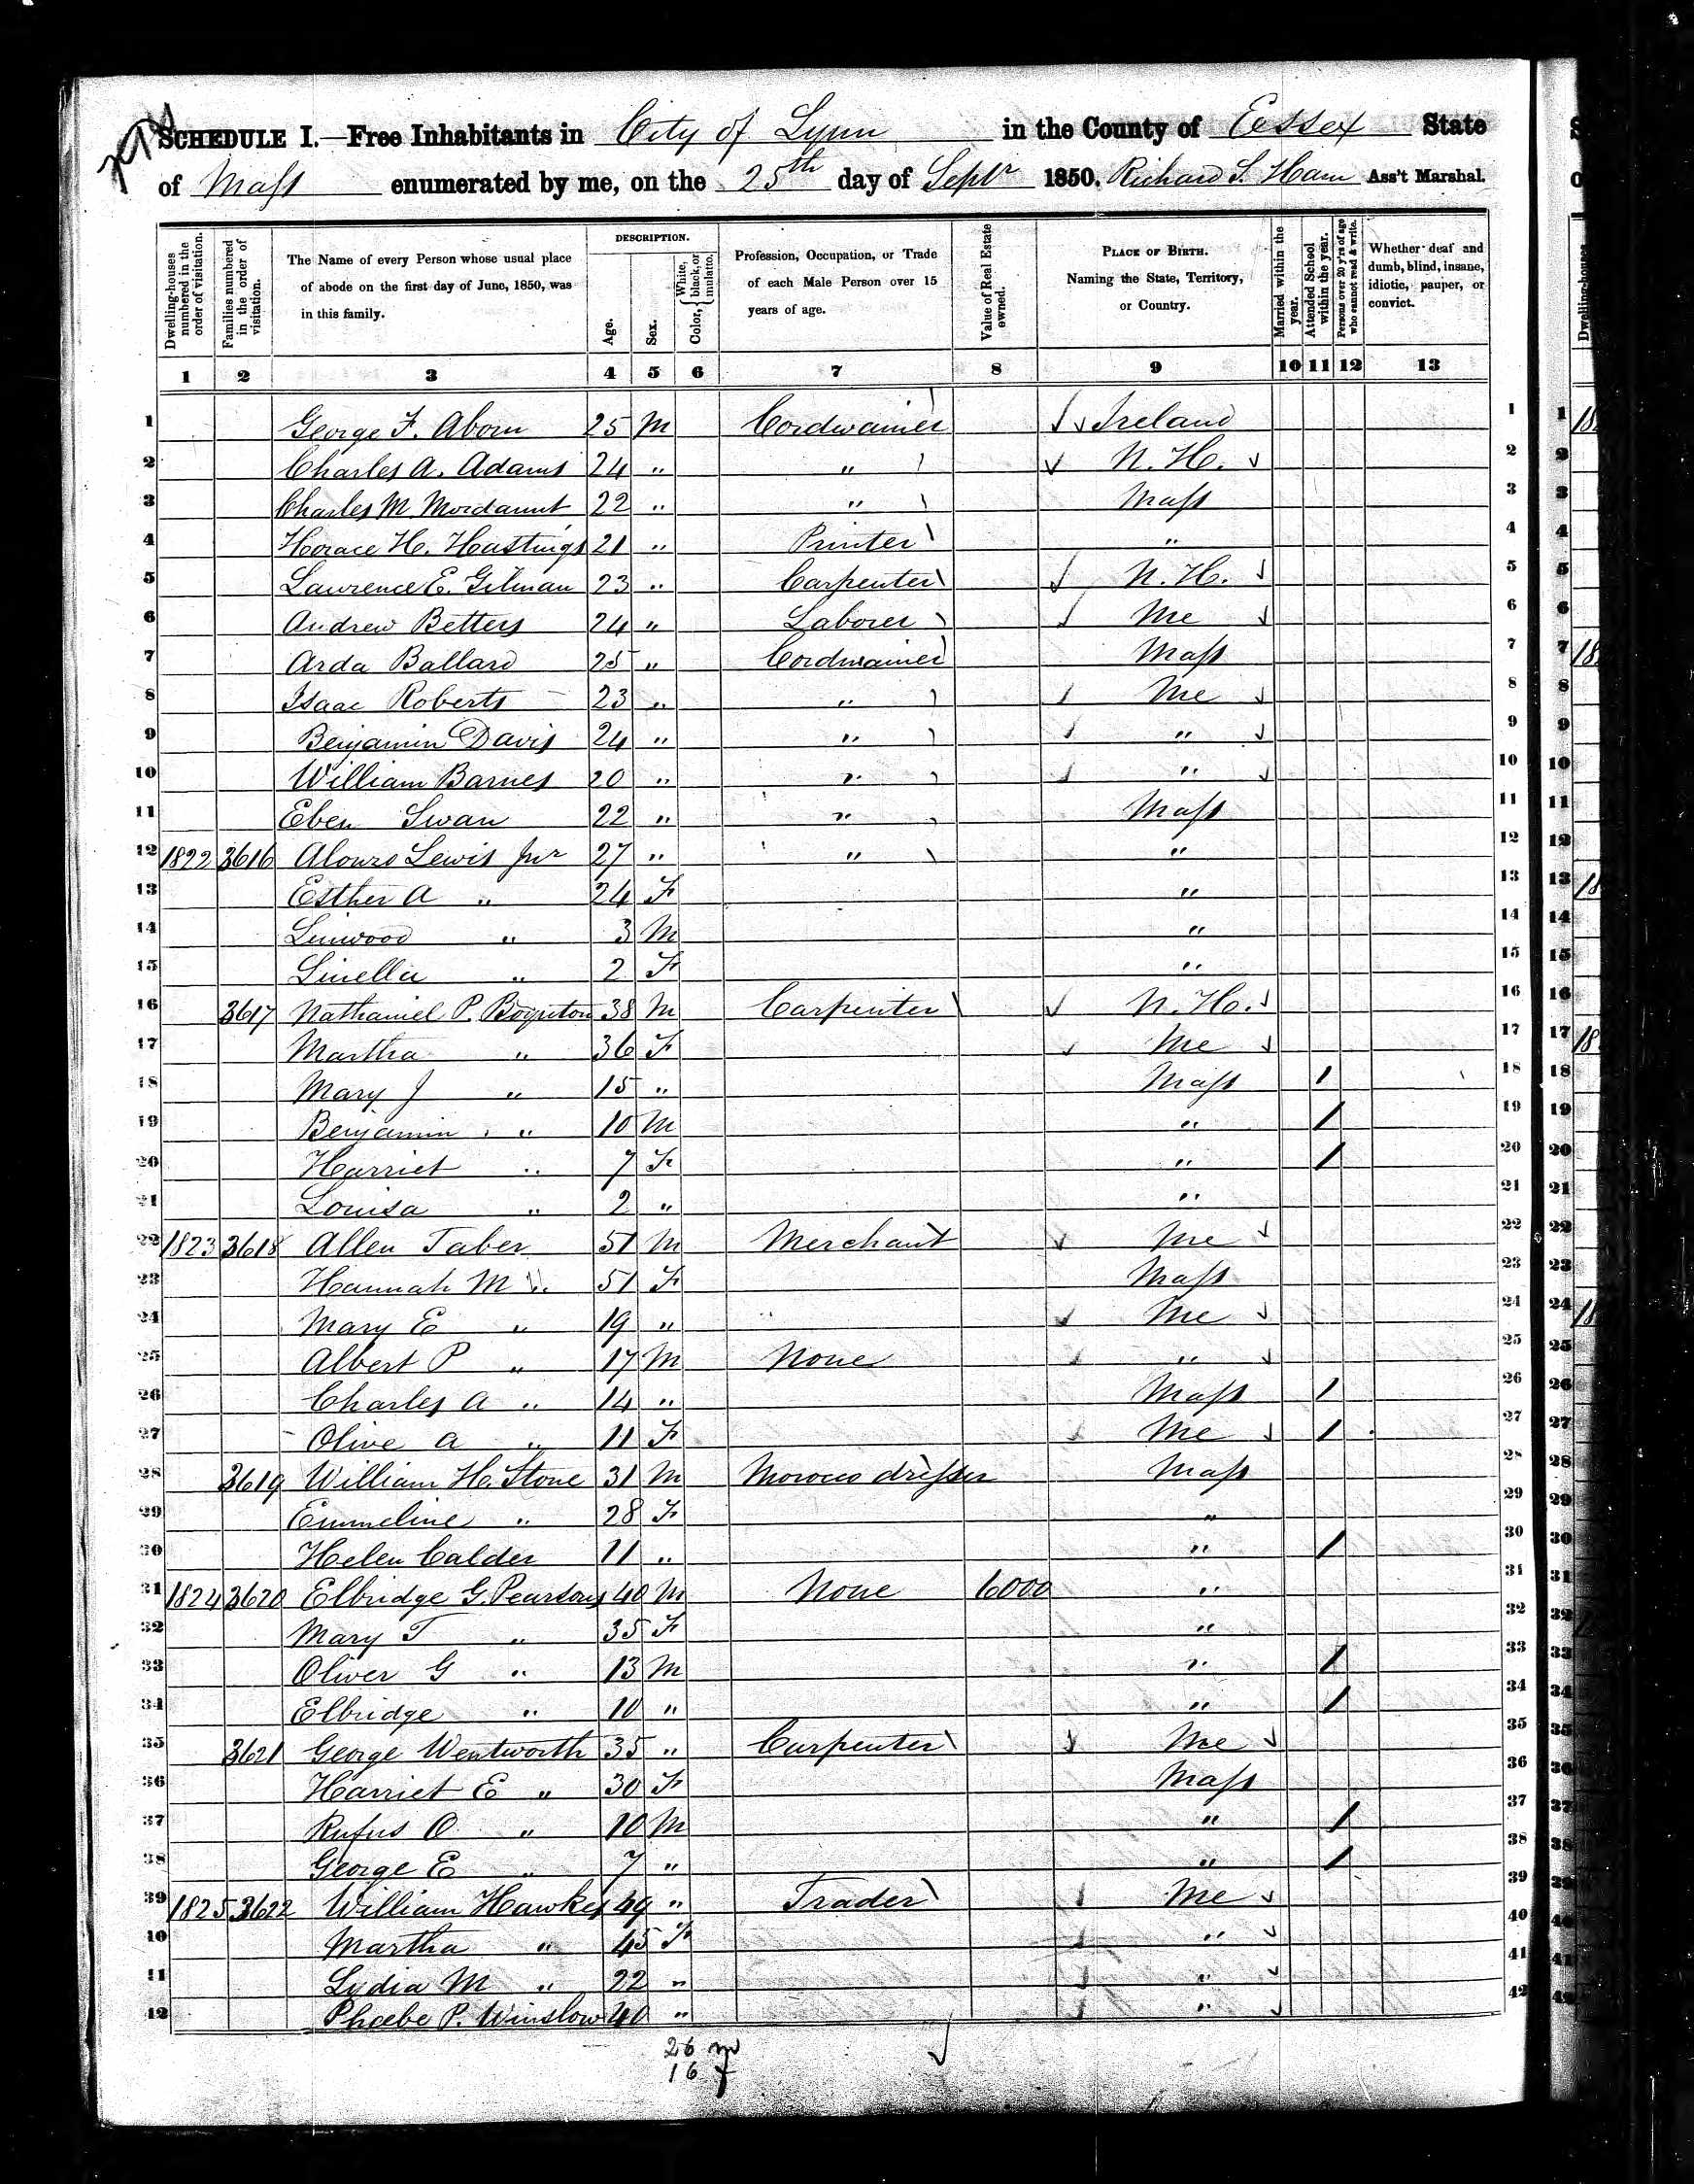 SCHEDULE I.—Free Inhabitants in City of Lynn in the County of Essex State
of Mass enumerated by me, on the 25th day of Septr 1850. Richard S. Ham Ass't Marshal.
Dwelling-houses numbered in the order of visitation.
Families numbered in the order of visitation.
The Name of every Person whose usual place of abode on the first day of June, 1850, was in this family.
DESCRIPTION.
Age.
Sex.
Color, { White, black, or mulatto.
Profession, Occupation, or Trade of each Male Person over 15 years of age.
Value of Real Estate owned.
PLACE OF BIRTH. Naming the State, Territory, or Country.
Married within the year.
Attended School within the year.
Persons over 20 y'rs of age who cannot read & write.
Whether deaf and dumb, blind, insane, idiotic, pauper, or convict.
1 2 3 4 5 6 7 8 9 10 11 12 13
1 George F. Aborn 25 M Cordwainer Ireland 1
2 Charles A. Adams 24 " " N. H. 2
3 Charles M. Mordaunt 22 " " Mass 3
4 Horace H. Hastings 21 " Printer " 4
5 Lawrence E. Gilman 23 " Carpenter N. H. 5
6 Andrew Betters 24 " Laborer Me 6
7 Arda Ballard 25 " Cordwainer Mass 7
8 Isaac Roberts 23 " " Me 8
9 Benjamin Davis 24 " " " 9
10 William Barnes 20 " " " 10
11 Eben Swan 22 " " Mass 11
12 1822 3616 Alonzo Lewis Jnr 27 " " " 12
13 Esther A " 24 F " 13
14 Linwood " 3 M " 14
15 Linella " 2 F " 15
16 3617 Nathaniel P. Boynton 38 M Carpenter N. H. 16
17 Martha " 36 F Me 17
18 Mary J " 15 " Mass / 18
19 Benjamin " 10 M " / 19
20 Harriet " 7 F " / 20
21 Louisa " 2 " " 21
22 1823 3618 Allen Taber 51 M Merchant Me 22
23 Hannah M " 51 F Mass 23
24 Mary E " 19 " Me 24
25 Albert P " 17 M None " 25
26 Charles A " 14 " Mass / 26
27 Olive A " 11 F Me / 27
28 3619 William H. Stone 31 M Morocco dresser Mass 28
29 Emmeline " 28 F " 29
30 Helen Calder 11 " " / 30
31 1824 3620 Elbridge G. Pearsons 40 M None 6000 " 31
32 Mary T " 35 F " 32
33 Oliver G " 13 M " / 33
34 Elbridge " 10 " " / 34
35 3621 George Wentworth 35 " Carpenter Me 35
36 Harriet E " 30 F Mass 36
37 Rufus O " 10 M " / 37
38 George E " 7 " " / 38
39 1825 3622 William Hawkes 49 " Trader Me 39
40 Martha " 45 F " 40
41 Lydia M " 22 " " 41
42 Phoebe P. Winslow 40 " " 42
26 m
16 f